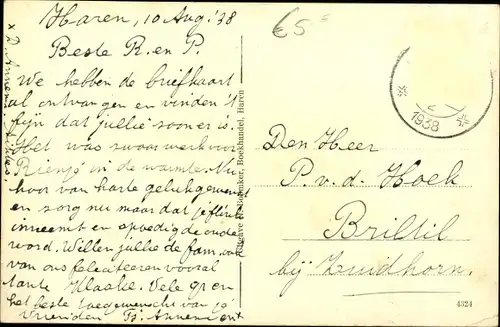 Haren, 10 Aug. '38
Beste R. en P.
We hebben de briefkaart
al ontvangen en vinden 't
fijn dat jullie zoon er is.
Het was zwaar werk voor
Riensje in de warmte. Nu
hoor van harte gelukgewenscht
en zorg nu maar dat je flink
inneemt en spoedig de oude
word. Willen jullie de fam. ook
van ons feliciteeren vooral
tante Klaake. Vele gr. en
het beste toegewenscht van je
Vrienden B. Annemie en
Uitgave Boekhandel, Haren
€5
1938
Den Heer
P. v. d. Hoek
Briltil
bij Zuidhorn.
4324